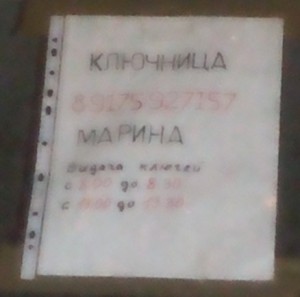 КЛЮЧНИЦА
89175927157
МАРИНА
Выдача ключей
с 8.00 до 8.30
с до